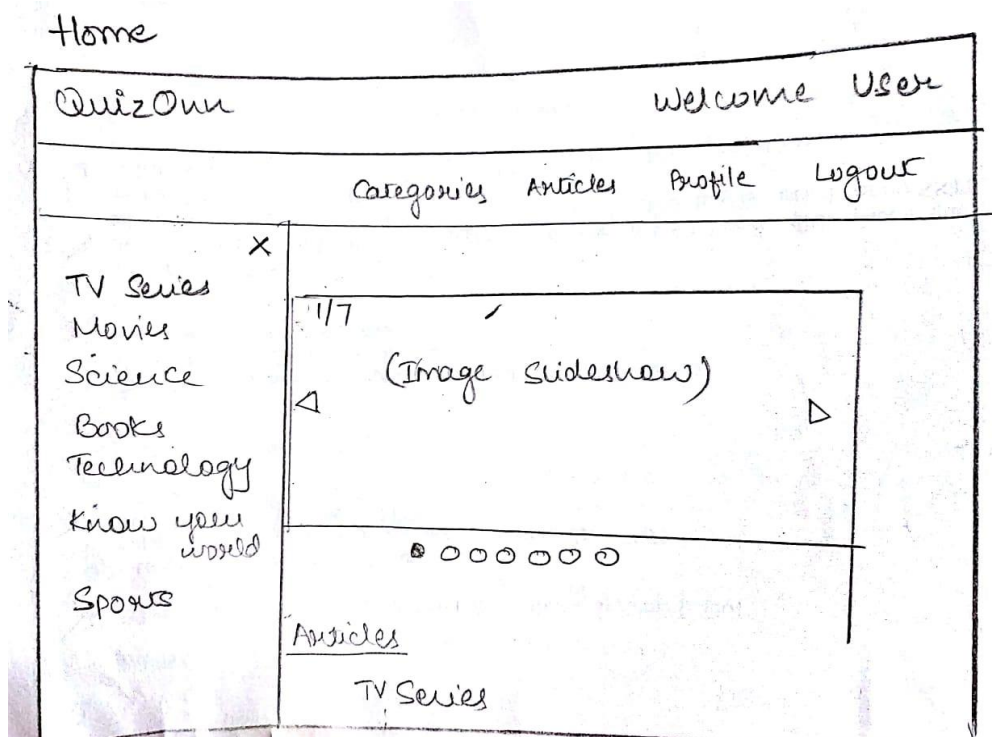 Home
QuizOnn
Welcome User
Categories Articles Profile Logout
X
TV Series
Movies
Science
Books
Technology
Know your
world
Sports
1/7
(Image slideshow)
Articles
TV Series